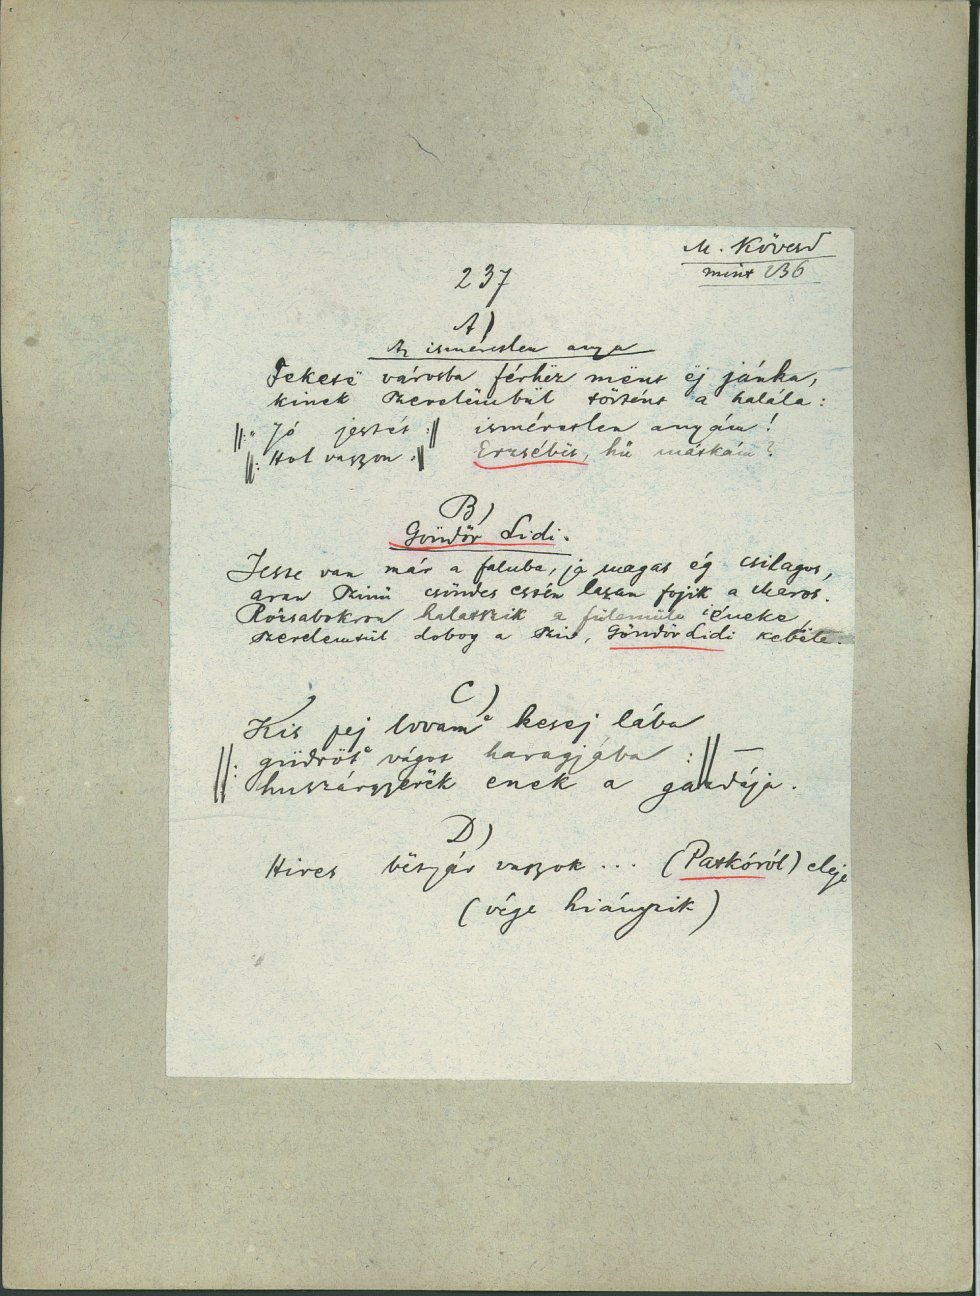 M. Kövesd
mint 236
237
A)
Az ismeretlen anya
Fekete városba férhëz mënt ëj jánka,
kinek szerelëmbül történt a halála:
||: Jó jestét :|| ismeretlen anyám!
||: Hol vaszon :|| Erzsébët, hű mátkám?
B)
Göndör Lidi.
Jesse van már a faluba, ja magas ég csilagos,
aran szinü csöndes estén lasan fojik a Maros.
Rózsabokron halatszik a fülemüle jéneke,
szerelemtül dobog a szív, Göndör Lidi kebele.
C)
Kis pej lovam kesej lába
||: güdröt vágot haragjába :|| —
huszárgyerëk enek a gazdája.
D)
Hires bëtyár vagyok ... (Patkóról) eleje
(vége hiányzik)